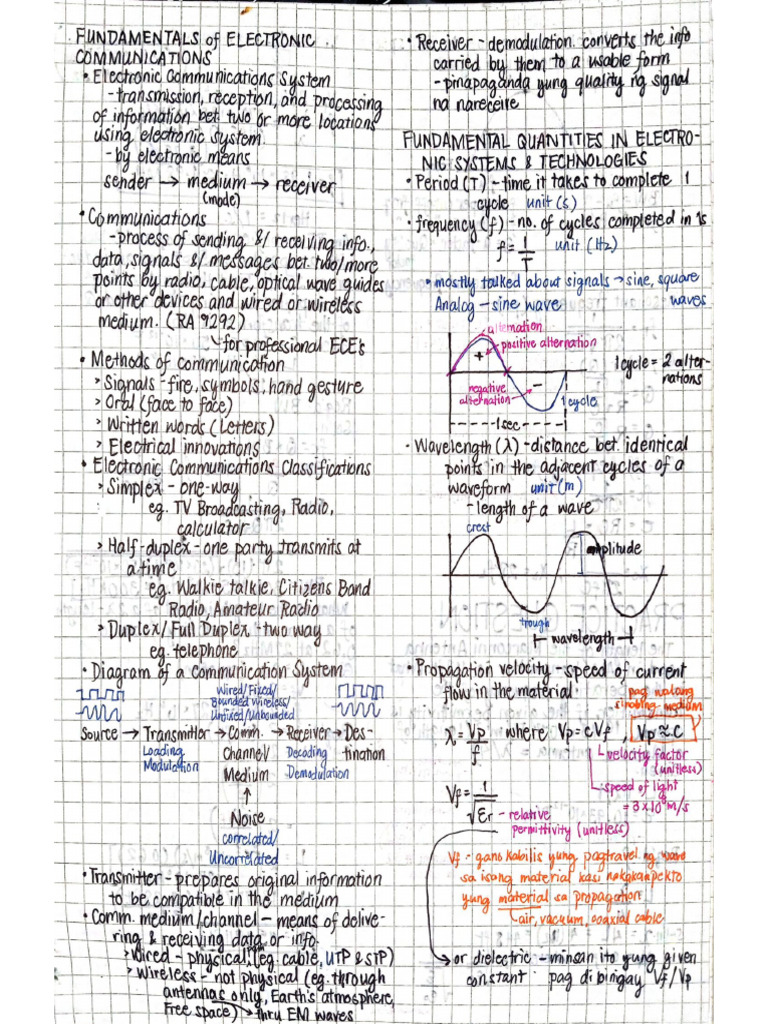 FUNDAMENTALS of ELECTRONIC
COMMUNICATIONS
• Electronic Communications System
- transmission, reception, and processing
of information bet two or more locations
using electronic system.
- by electronic means
sender → medium → receiver
(mode)
• Communications
- process of sending &/ receiving info.,
data, signals &/ messages bet. two/more
points by radio, cable, optical wave guides
or other devices and wired or wireless
medium. (RA 9292)
for professional ECE's
• Methods of communication
> Signals - fire, symbols, hand gesture
> Oral (face to face)
> Written words (Letters)
> Electrical innovations
• Electronic Communications Classifications
> Simplex - one-way
eg. TV Broadcasting, Radio,
calculator
> Half-duplex - one party transmits at
a time
eg. Walkie talkie, Citizens Band
Radio, Amateur Radio
> Duplex/Full Duplex - two way
eg. telephone
• Diagram of a Communication System
Wired/Fixed/
Bounded Wireless/
Unfixed/Unbounded
Source → Transmitter → Comm. → Receiver → Des-
Loading Channel/ Decoding tination
Modulation Medium Demodulation
↑
Noise
correlated/
Uncorrelated
• Transmitter - prepares original information
to be compatible in the medium
• Comm. medium/channel - means of delive-
ring & receiving data or info.
> Wired - physical (eg. cable, UTP & STP)
> Wireless - not physical (eg. through
antennas only, Earth's atmosphere,
Free space) → thru EM waves
• Receiver - demodulation. converts the info
carried by them to a usable form
- pinapaganda yung quality ng signal
na nareceive
FUNDAMENTAL QUANTITIES IN ELECTRO-
NIC SYSTEMS & TECHNOLOGIES
• Period (T) - time it takes to complete 1
cycle unit (s)
• frequency (f) - no. of cycles completed in 1s
f = 1/T unit (Hz)
• mostly talked about signals → sine, square
Analog - sine wave waves
alternation
positive alternation
+
1 cycle = 2 alter-
nations
negative
alternation
-
1 cycle
1 sec
• Wavelength (λ) - distance bet. identical
points in the adjacent cycles of a
waveform unit (m)
- length of a wave
crest
amplitude
trough
wavelength
• Propagation velocity - speed of current
flow in the material
pag walang
sinabing medium
λ = Vp/f where Vp = cVf , Vp ≈ C
velocity factor
(unitless)
speed of light
= 3x10⁸ m/s
Vf = 1/√εr - relative
permittivity (unitless)
Vf - gano kabilis yung pagtravel ng wave
sa isang material kasi nakakaapekto
yung material sa propagation
air, vacuum, coaxial cable
→ or dielectric - minsan ito yung given
constant pag di bingay Vf/Vp